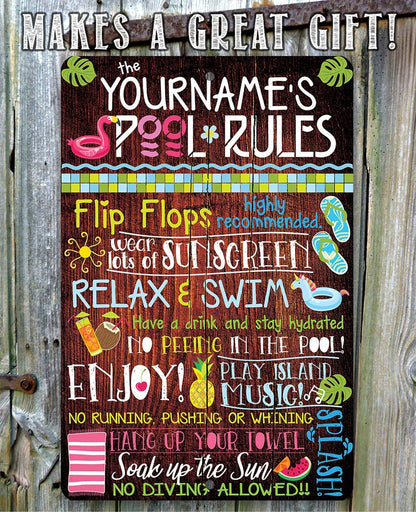 MAKES A GREAT GIFT!
the
YOURNAME'S
POOL RULES
Flip Flops highly
recommended.
wear
lots of SUNSCREEN
RELAX & SWIM
Have a drink and stay hydrated
NO PEEING IN THE POOL!
ENJOY! PLAY ISLAND
MUSIC!
NO RUNNING, PUSHING OR WHINING
HANG UP YOUR TOWEL
Soak up the Sun
NO DIVING ALLOWED!!
SPLASH!